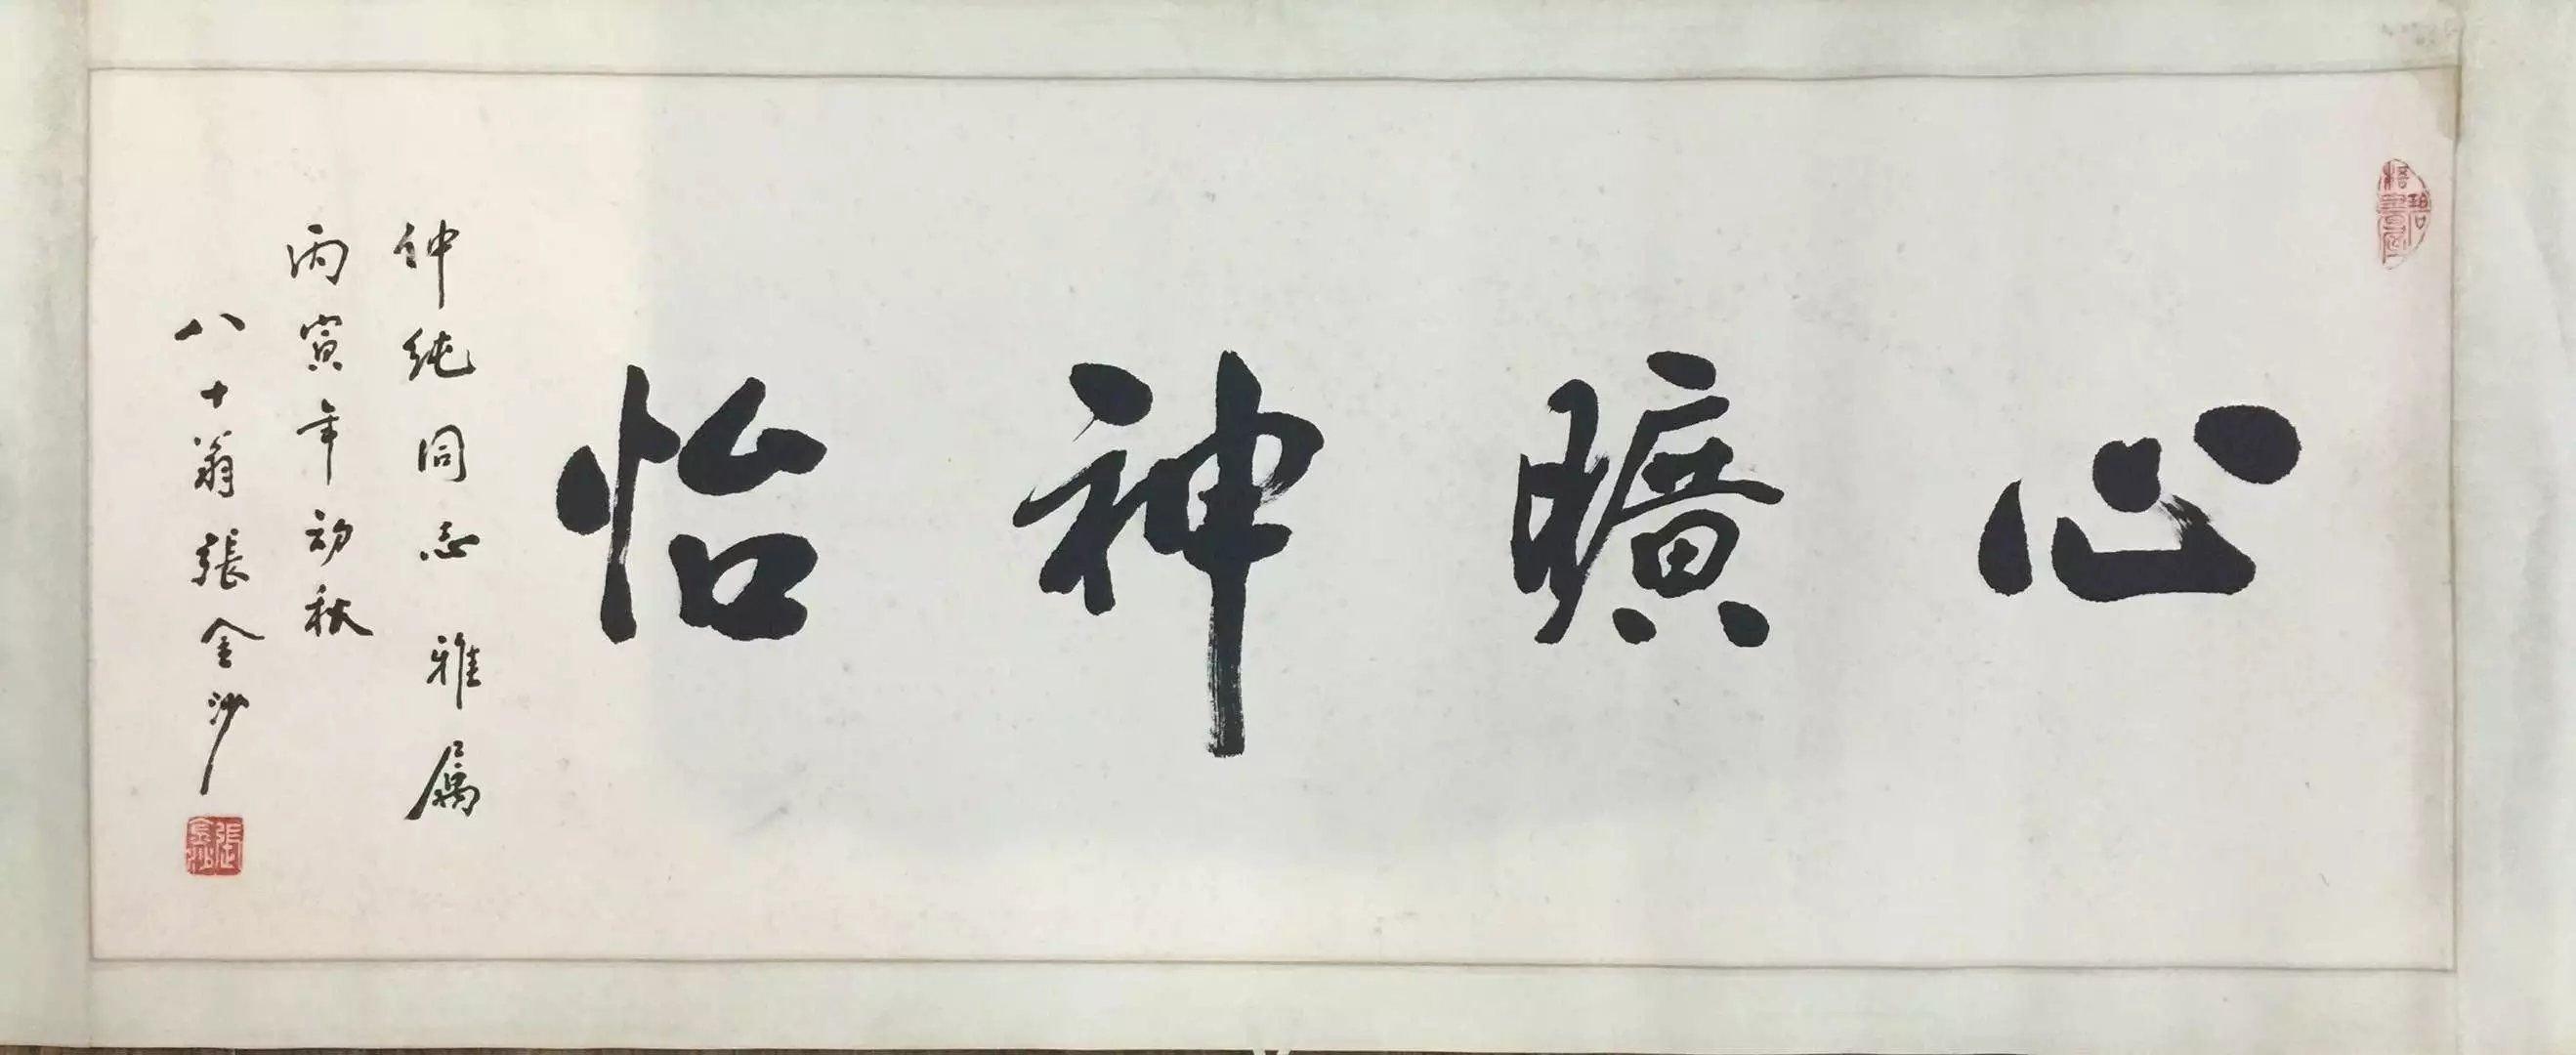 心曠神怡
仲純同志雅属
丙寅年初秋
八十翁張金沙
碧梧書屋
張金沙